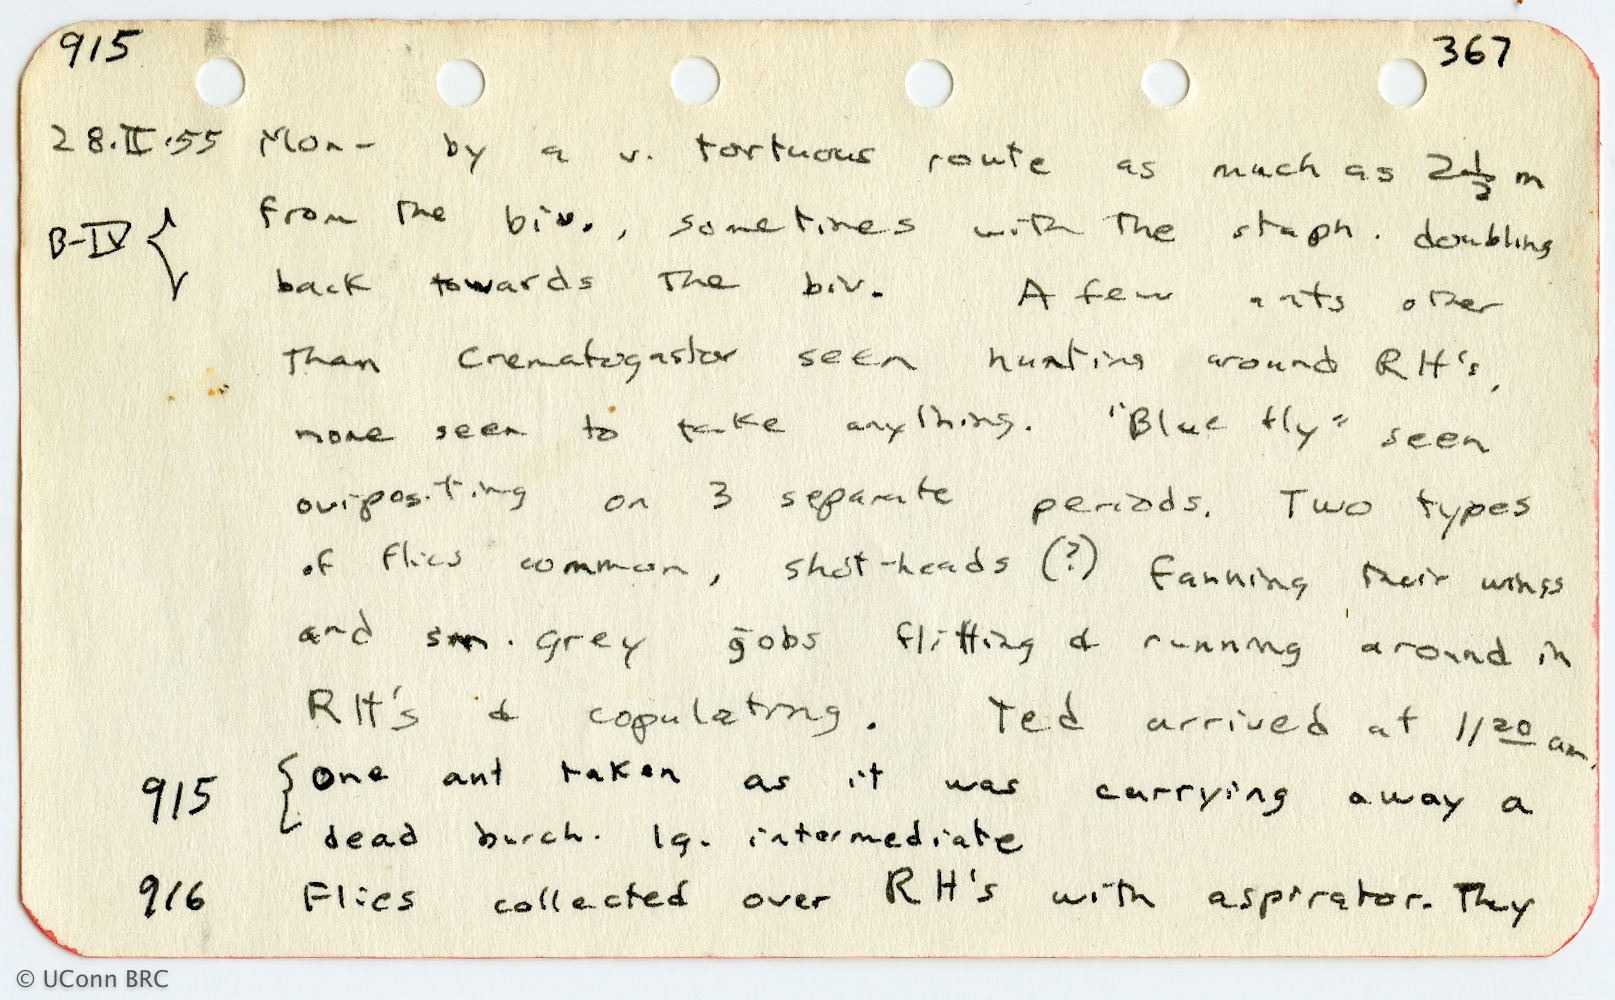 915 367
28.II.55 Mon- by a v. tortuous route as much as 2½ m
B-IV { from the biv., sometimes with the staph. doubling
back towards the biv. A few ants other
than Crematogastor seen hunting around RH's,
none seen to take anything. "Blue fly" seen
ovipositing on 3 separate periods. Two types
of flies common, shot-heads (?) fanning their wings
and sm. grey jobs flitting & running around in
RH's & copulating. Ted arrived at 11 20 am.
915 { One ant taken as it was carrying away a
dead burch. lg. intermediate
916 Flies collected over RH's with aspirator. They
© UConn BRC